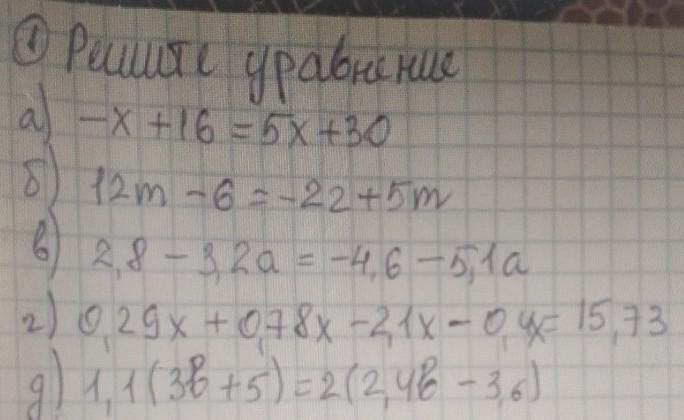 ① Решите уравнение
а) -x + 16 = 5x + 30
б) 12m - 6 = -22 + 5m
в) 2,8 - 3,2a = -4,6 - 5,1a
г) 0,29x + 0,78x - 2,1x - 0,4x = 15,73
д) 1,1(3в + 5) = 2(2,4в - 3,6)